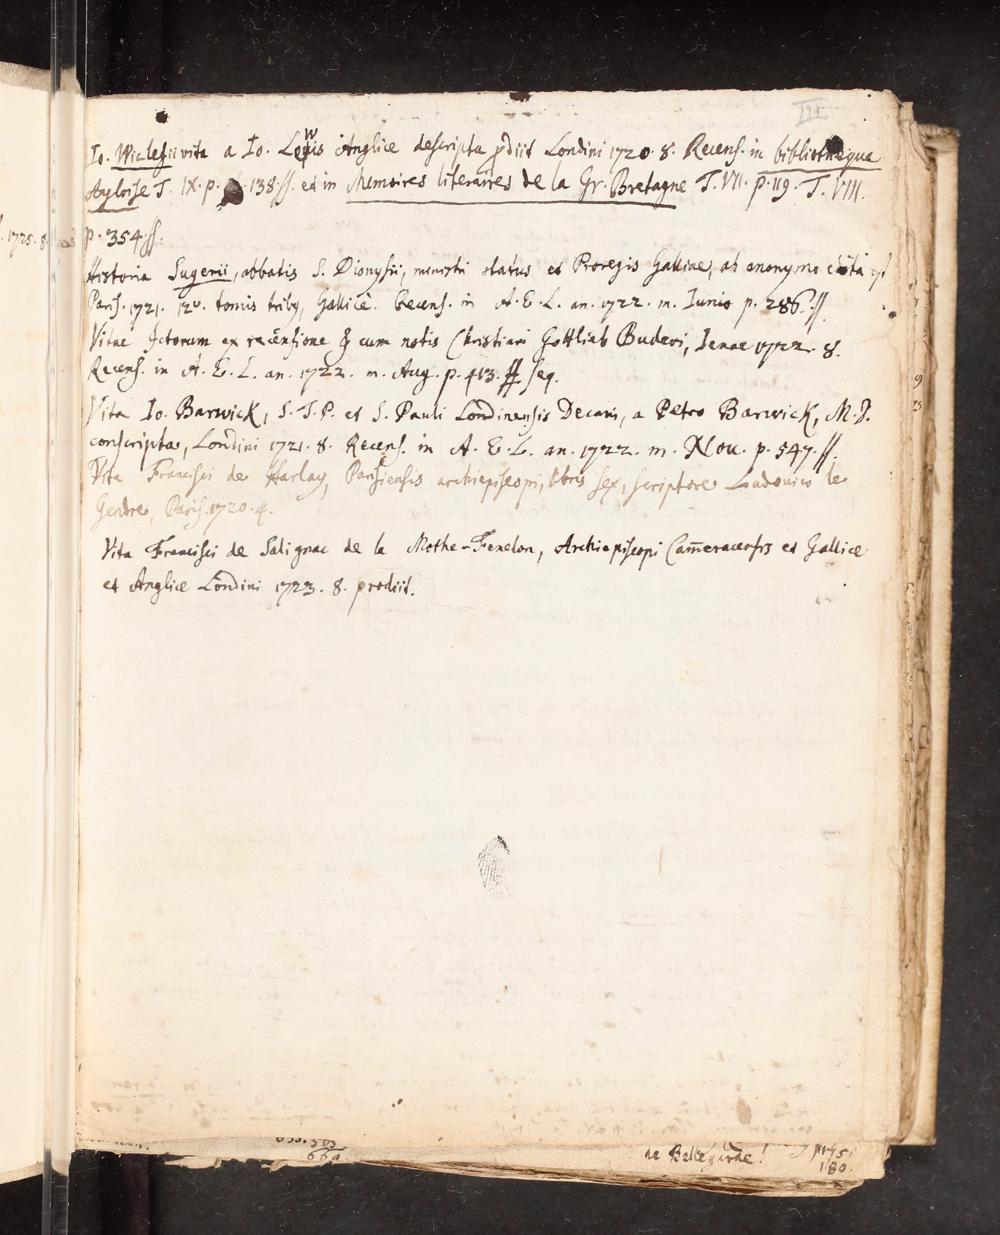 III
Io. Wiclefii vita a Io. Lewis Anglice descripta prodiit Londini 1720. 8. Recens. in bibliotheque
Angloise T. IX. p. 138. ff. et in Memoires literaires de la Gr. Bretagne T. VII. p. 119. T. VIII.
p. 354. ff.
1725. 8.
Historia Sugerii, abbatis S. Dionysii, ministri status et Proregis Galliae, ab anonymo edita est
Paris. 1721. 12°. tomis tribus, Gallice. Recens. in A. E. L. an. 1722. m. Iunio p. 286. ff.
Vitae Ictorum ex recensione & cum notis Christiani Gottlieb Buderi, Ienae 1722. 8.
Recens. in A. E. L. an. 1722. m. Aug. p. 413. seq.
Vita Io. Barwick, S. T. P. et S. Pauli Londinensis Decani, a Petro Barwick, M. D.
conscripta, Londini 1721. 8. Recens. in A. E. L. an. 1722. m. Nou. p. 547. ff.
Vita Francisci de Harlay, Parisiensis archiepiscopi, libris sex, scriptore Ludouico le
Gendre, Paris. 1720. 4.
Vita Francisci de Salignac de la Mothe-Fenelon, Archiepiscopi Cameracensis et Gallice
et Anglice Londini 1723. 8. prodiit.
de Bellegarde!
180.